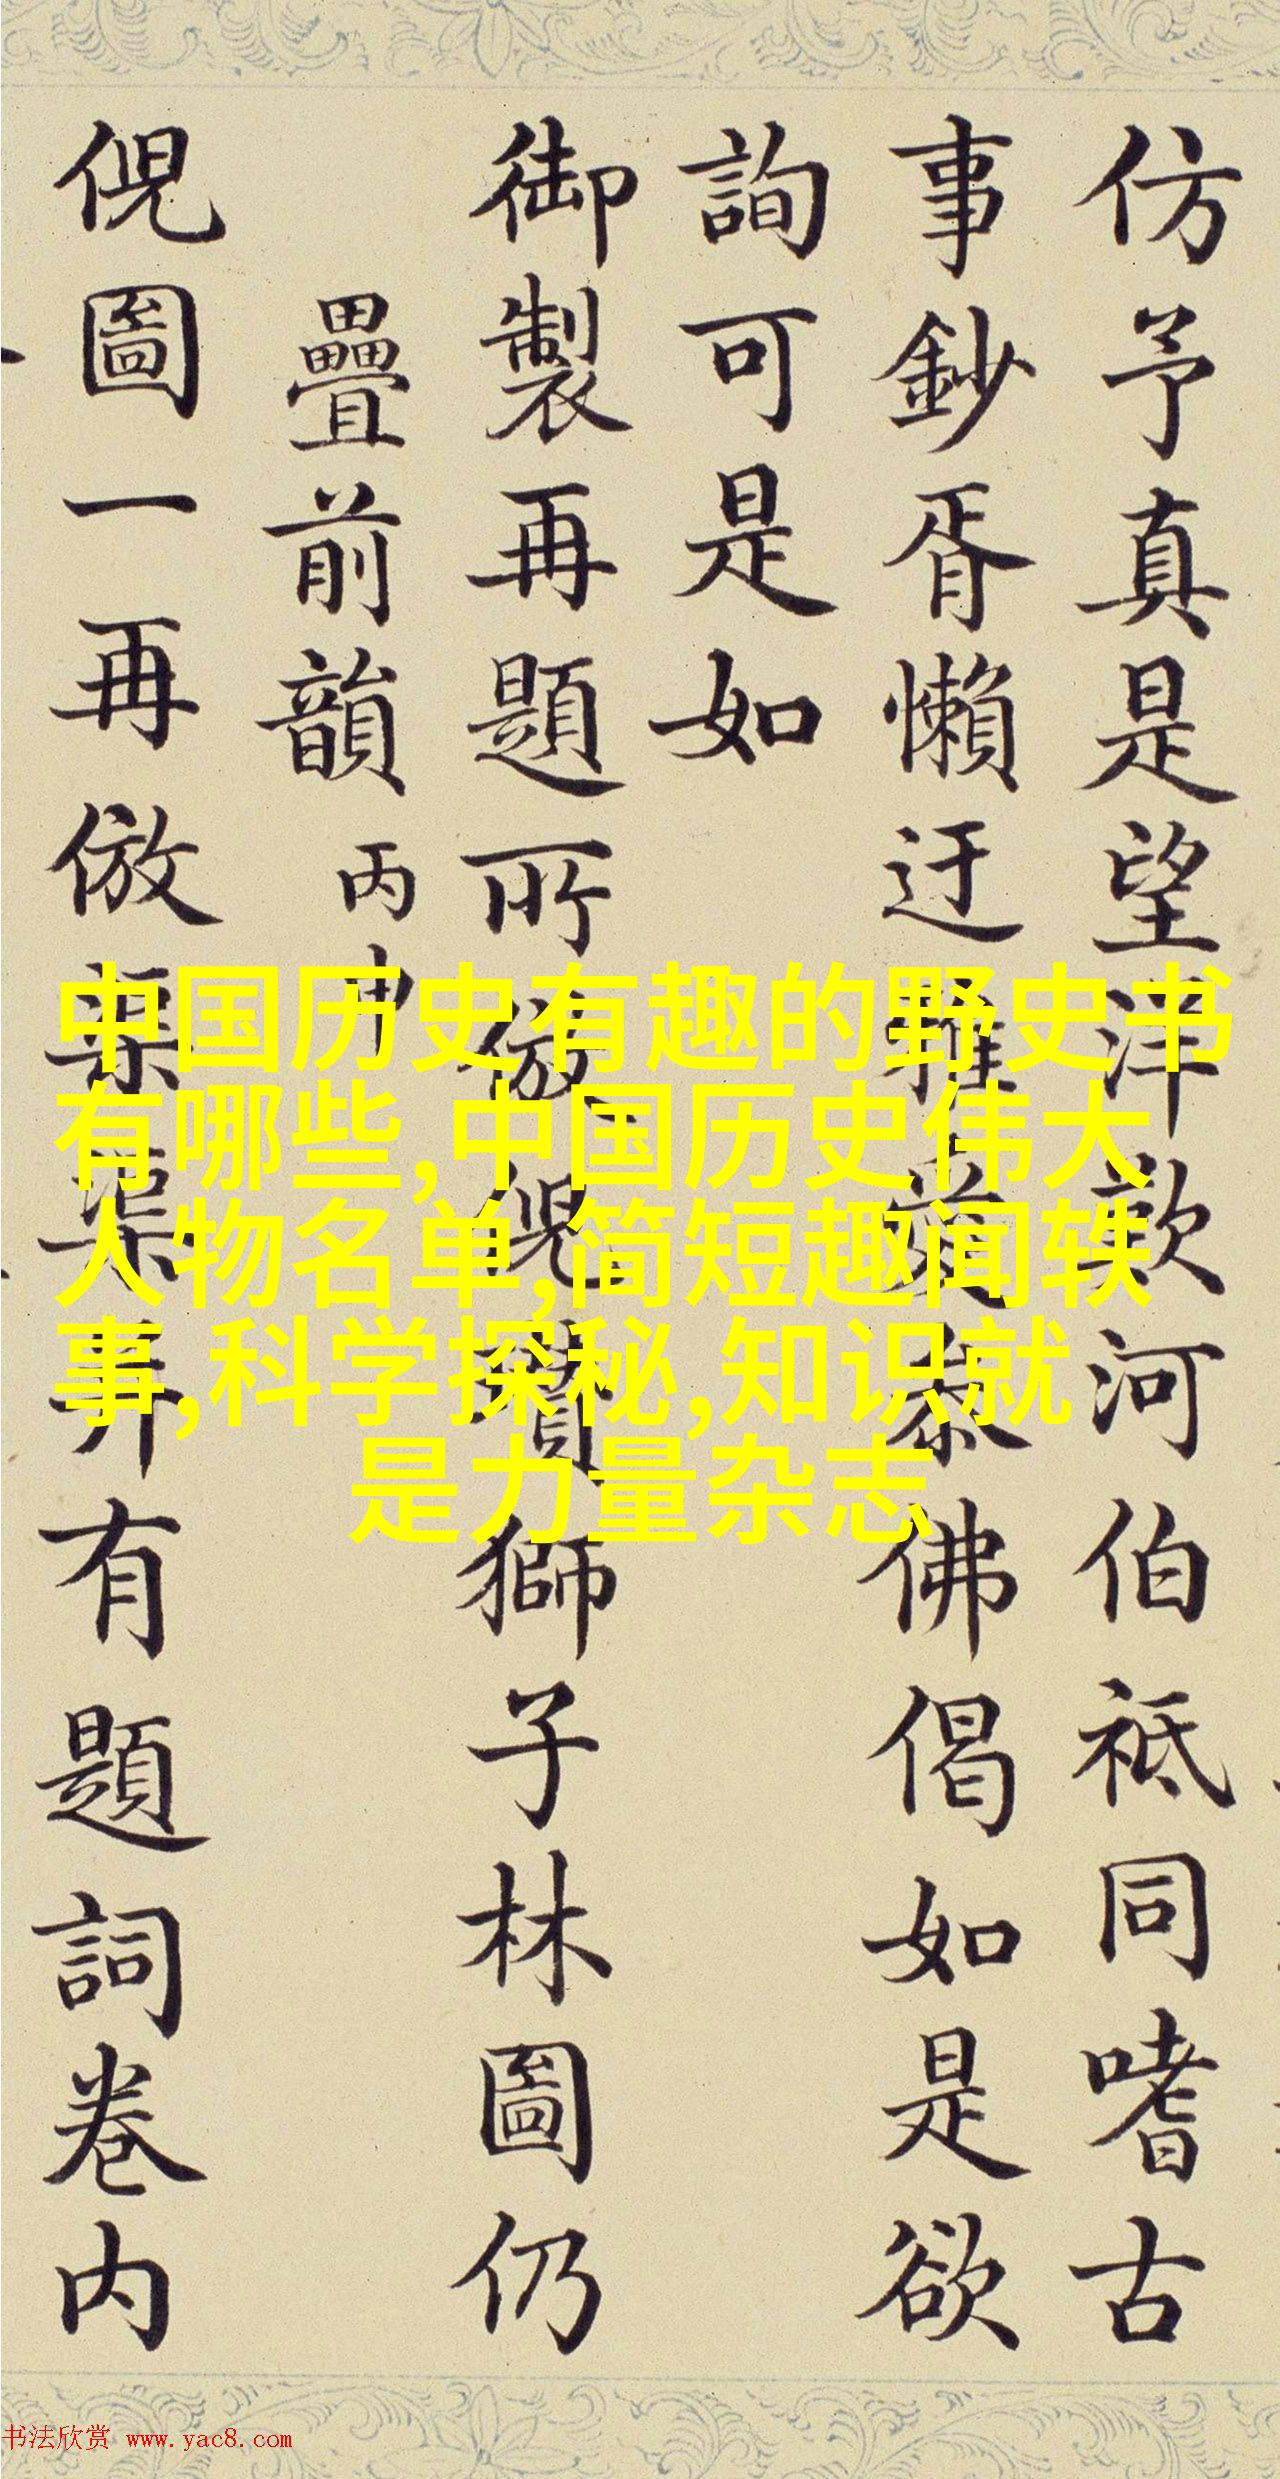 仿予真是望洋歎河伯祗同嗜古
事鈔胥懶迂佛偈如是欲
詢可是如
御製再題所倣倪瓚獅子林圖仍
疊前韻 丙申
倪圖一再倣弆有題詞卷内
中国历史有趣的野史书
有哪些,中国历史伟大
人物名单,简短趣闻轶
事,科学探秘,知识就
是力量杂志
书法欣赏 www.yac8.com